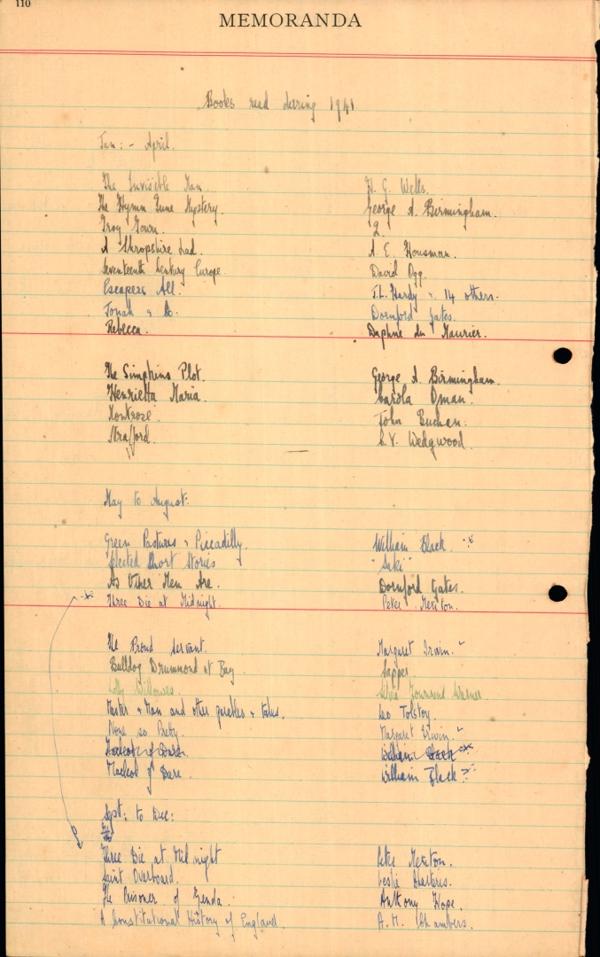 110
MEMORANDA
Books read during 1941
Jan: - April.
The Invisible Man. H. G. Wells.
The Hymn Tune Mystery. George A. Birmingham.
Troy Town. Q.
A Shropshire Lad. A. E. Housman.
Seventeenth Century Europe. David Ogg.
Escapers All. J.L. Hardy & 14 others.
Jonah & Co. Dornford Yates.
Rebecca. Daphne du Maurier.
The Simpkins Plot. George A. Birmingham.
Henrietta Maria. Carola Oman.
Montrose. John Buchan.
Strafford. C.V. Wedgwood.
May to August:
Green Pastures & Piccadilly William Black
Selected Short Stories "Saki"
As Other Men Are. Dornford Yates.
Three Die at Midnight. Peter Meriton.
The Proud Servant. Margaret Irwin.
Bulldog Drummond at Bay Sapper
Lolly Willowes Sylvia Townsend Warner
Master & Man and other parables & tales. Leo Tolstoy.
None so Pretty. Margaret Irwin.
Macleod of Dare. William Black
Macleod of Dare William Black
Sept: to Dec:
Three Die at Midnight Peter Meriton.
Saint Overboard. Leslie Charteris.
The Prisoner of Zenda. Anthony Hope.
A Constitutional History of England. A. M. Chambers.